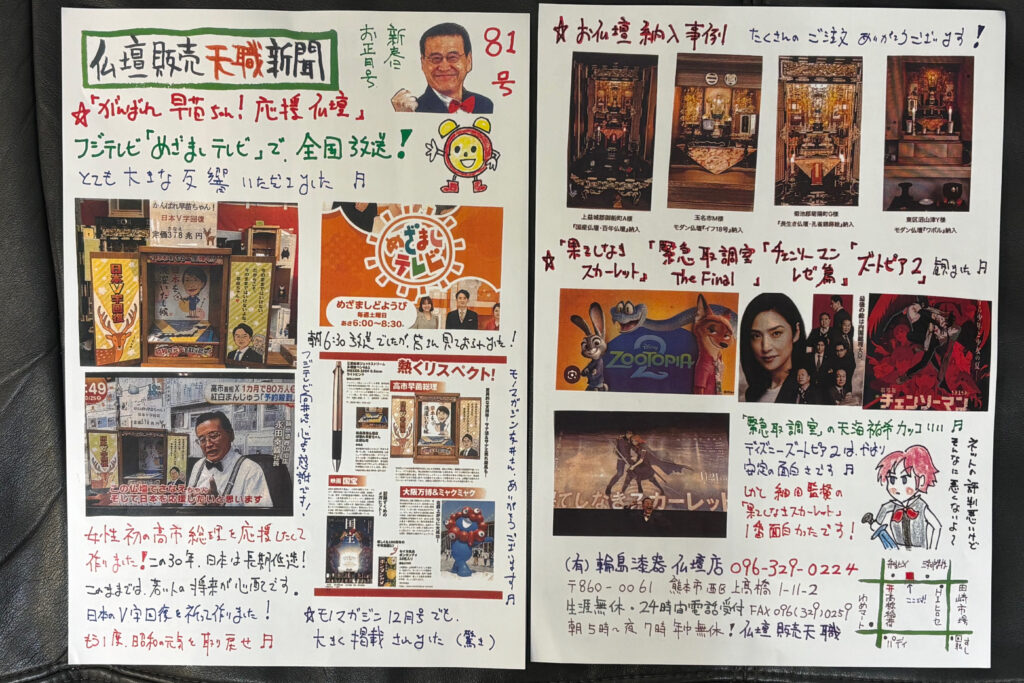 仏壇販売天職新聞
新春に
お正月号
81号
☆「がんばれ早苗ちゃん!応援仏壇」
フジテレビ「めざましテレビ」で、全国放送!
とても大きな反響いただきました♬
がんばれ早苗ちゃん!
日本V字回復
定価378兆円
日本V字回復
めざましテレビ
めざましどようび
毎週土曜日
あさ6:00〜8:30
朝6:30放送でしたが、皆さん見ておられました!
:49
高市首相X1か月で80万人
紅白まんじゅう「予約殺到
永田
社長
そして日本を応援したいと思います
女性初の高市総理を応援したくて
作りました!この30年、日本は長期低迷!
このままでは、若い人の将来が心配です。
日本のV字回復を祈って作りました!
もう1度、昭和の元気を取り戻せ♬
熱くリスペクト!
高市早苗総理
映画 国宝
国宝
大阪万博&ミャクミャク
モノマガジン
さん、ありがとうございます♬
☆モノマガジン12月号でも、
大きく掲載されました(驚き)
☆お仏壇納入事例 たくさんのご注文ありがとうございます!
上益城郡御船町A様
『国産仏壇・百年仏壇』納入
玉名市M様
モダン仏壇『イフ18号』納入
菊池郡菊陽町G様
『長生き仏壇・孔雀鶴蒔絵』納入
東区沼山津Y様
モダン仏壇『ワポル』納入
☆「果てしなきスカーレット」「緊急取調室 The Final」「チェンソーマン レゼ篇」「ズートピア2」観ました♬
Disney
ZOOTOPIA
2
最後の敵は内閣総理大臣
劇場版
チェンソーマン
果てしなきスカーレット
「緊急取調室」の天海祐希カッコいい!!♬
ディズニーズートピア2は、やはり
安定の面白さです♬
しかし細田監督の
「果てしなきスカーレット」
1番面白かったです!
ネットの評判悪いけど
そんなに悪くないよ〜
(有)輪島漆器仏壇店 096-329-0224
〒860-0061 熊本市西区上高橋1-11-2
生涯無休・24時間電話受付 FAX096(329)0259
朝5時〜夜7時年中無休!仏壇販売天職
ここ!
田崎市場